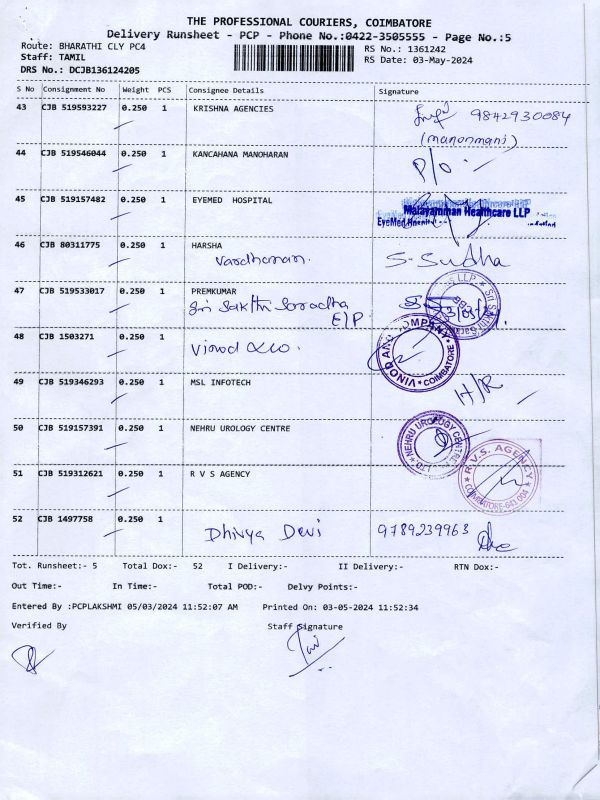 THE PROFESSIONAL COURIERS, COIMBATORE
Delivery Runsheet - PCP - Phone No.:0422-3505555 - Page No.:5
Route: BHARATHI CLY PC4 RS No.: 1361242
Staff: TAMIL RS Date: 03-May-2024
DRS No.: DCJB136124205
S No Consignment No Weight PCS Consignee Details Signature
43 CJB 519593227 0.250 1 KRISHNA AGENCIES 9842930084
(manonmani)
44 CJB 519546044 0.250 1 KANCAHANA MANOHARAN P/O.
45 CJB 519157482 0.250 1 EYEMED HOSPITAL Malayamman Healthcare LLP
EyeMed Hospital
46 CJB 80311775 0.250 1 HARSHA S-Sudha
Vardhaman.
47 CJB 519533017 0.250 1 PREMKUMAR
Sri Sakthi Saradha
E/P
48 CJB 1503271 0.250 1 VINOD AND COMPANY
Vinod &Co. COIMBATORE
49 CJB 519346293 0.250 1 MSL INFOTECH H/R
50 CJB 519157391 0.250 1 NEHRU UROLOGY CENTRE NEHRU UROLOGY CENTRE
51 CJB 519312621 0.250 1 R V S AGENCY R.V.S. AGENCY
COIMBATORE-641 004
52 CJB 1497758 0.250 1 Dhivya Devi 9789239963
Tot. Runsheet:- 5 Total Dox:- 52 I Delivery:- II Delivery:- RTN Dox:-
Out Time:- In Time:- Total POD:- Delvy Points:-
Entered By :PCPLAKSHMI 05/03/2024 11:52:07 AM Printed On: 03-05-2024 11:52:34
Verified By Staff Signature